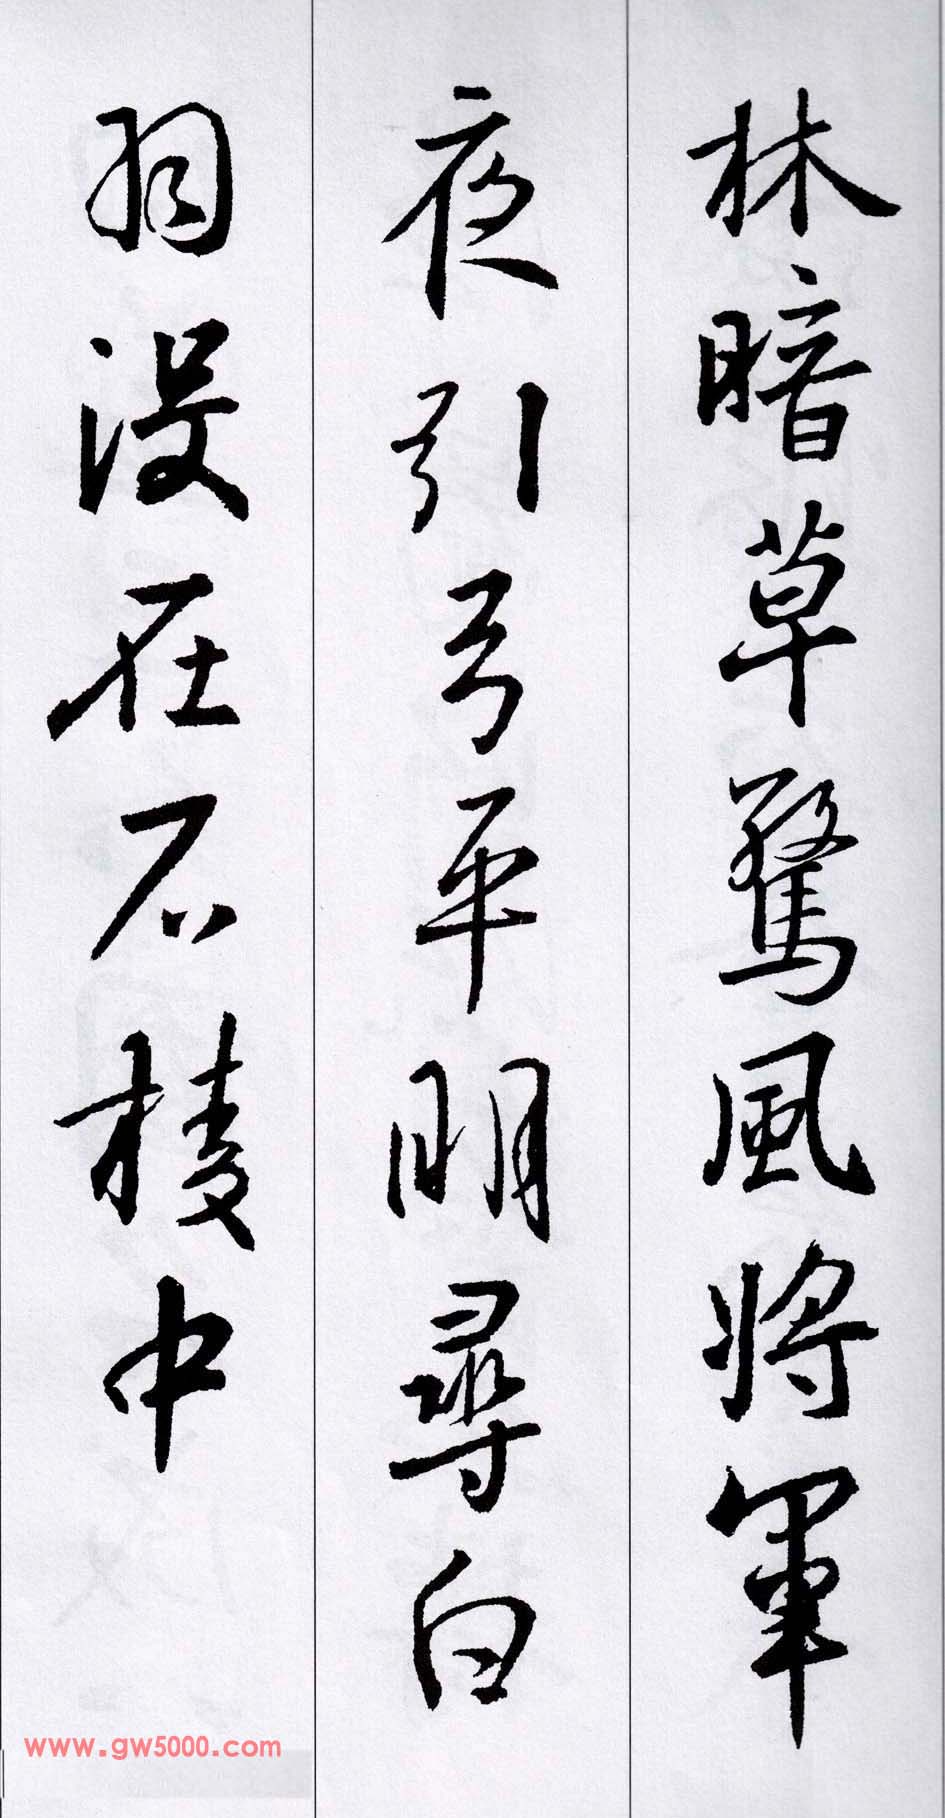 林暗草驚風將軍
夜引弓平明尋白
羽沒在石棱中
www.gw5000.com